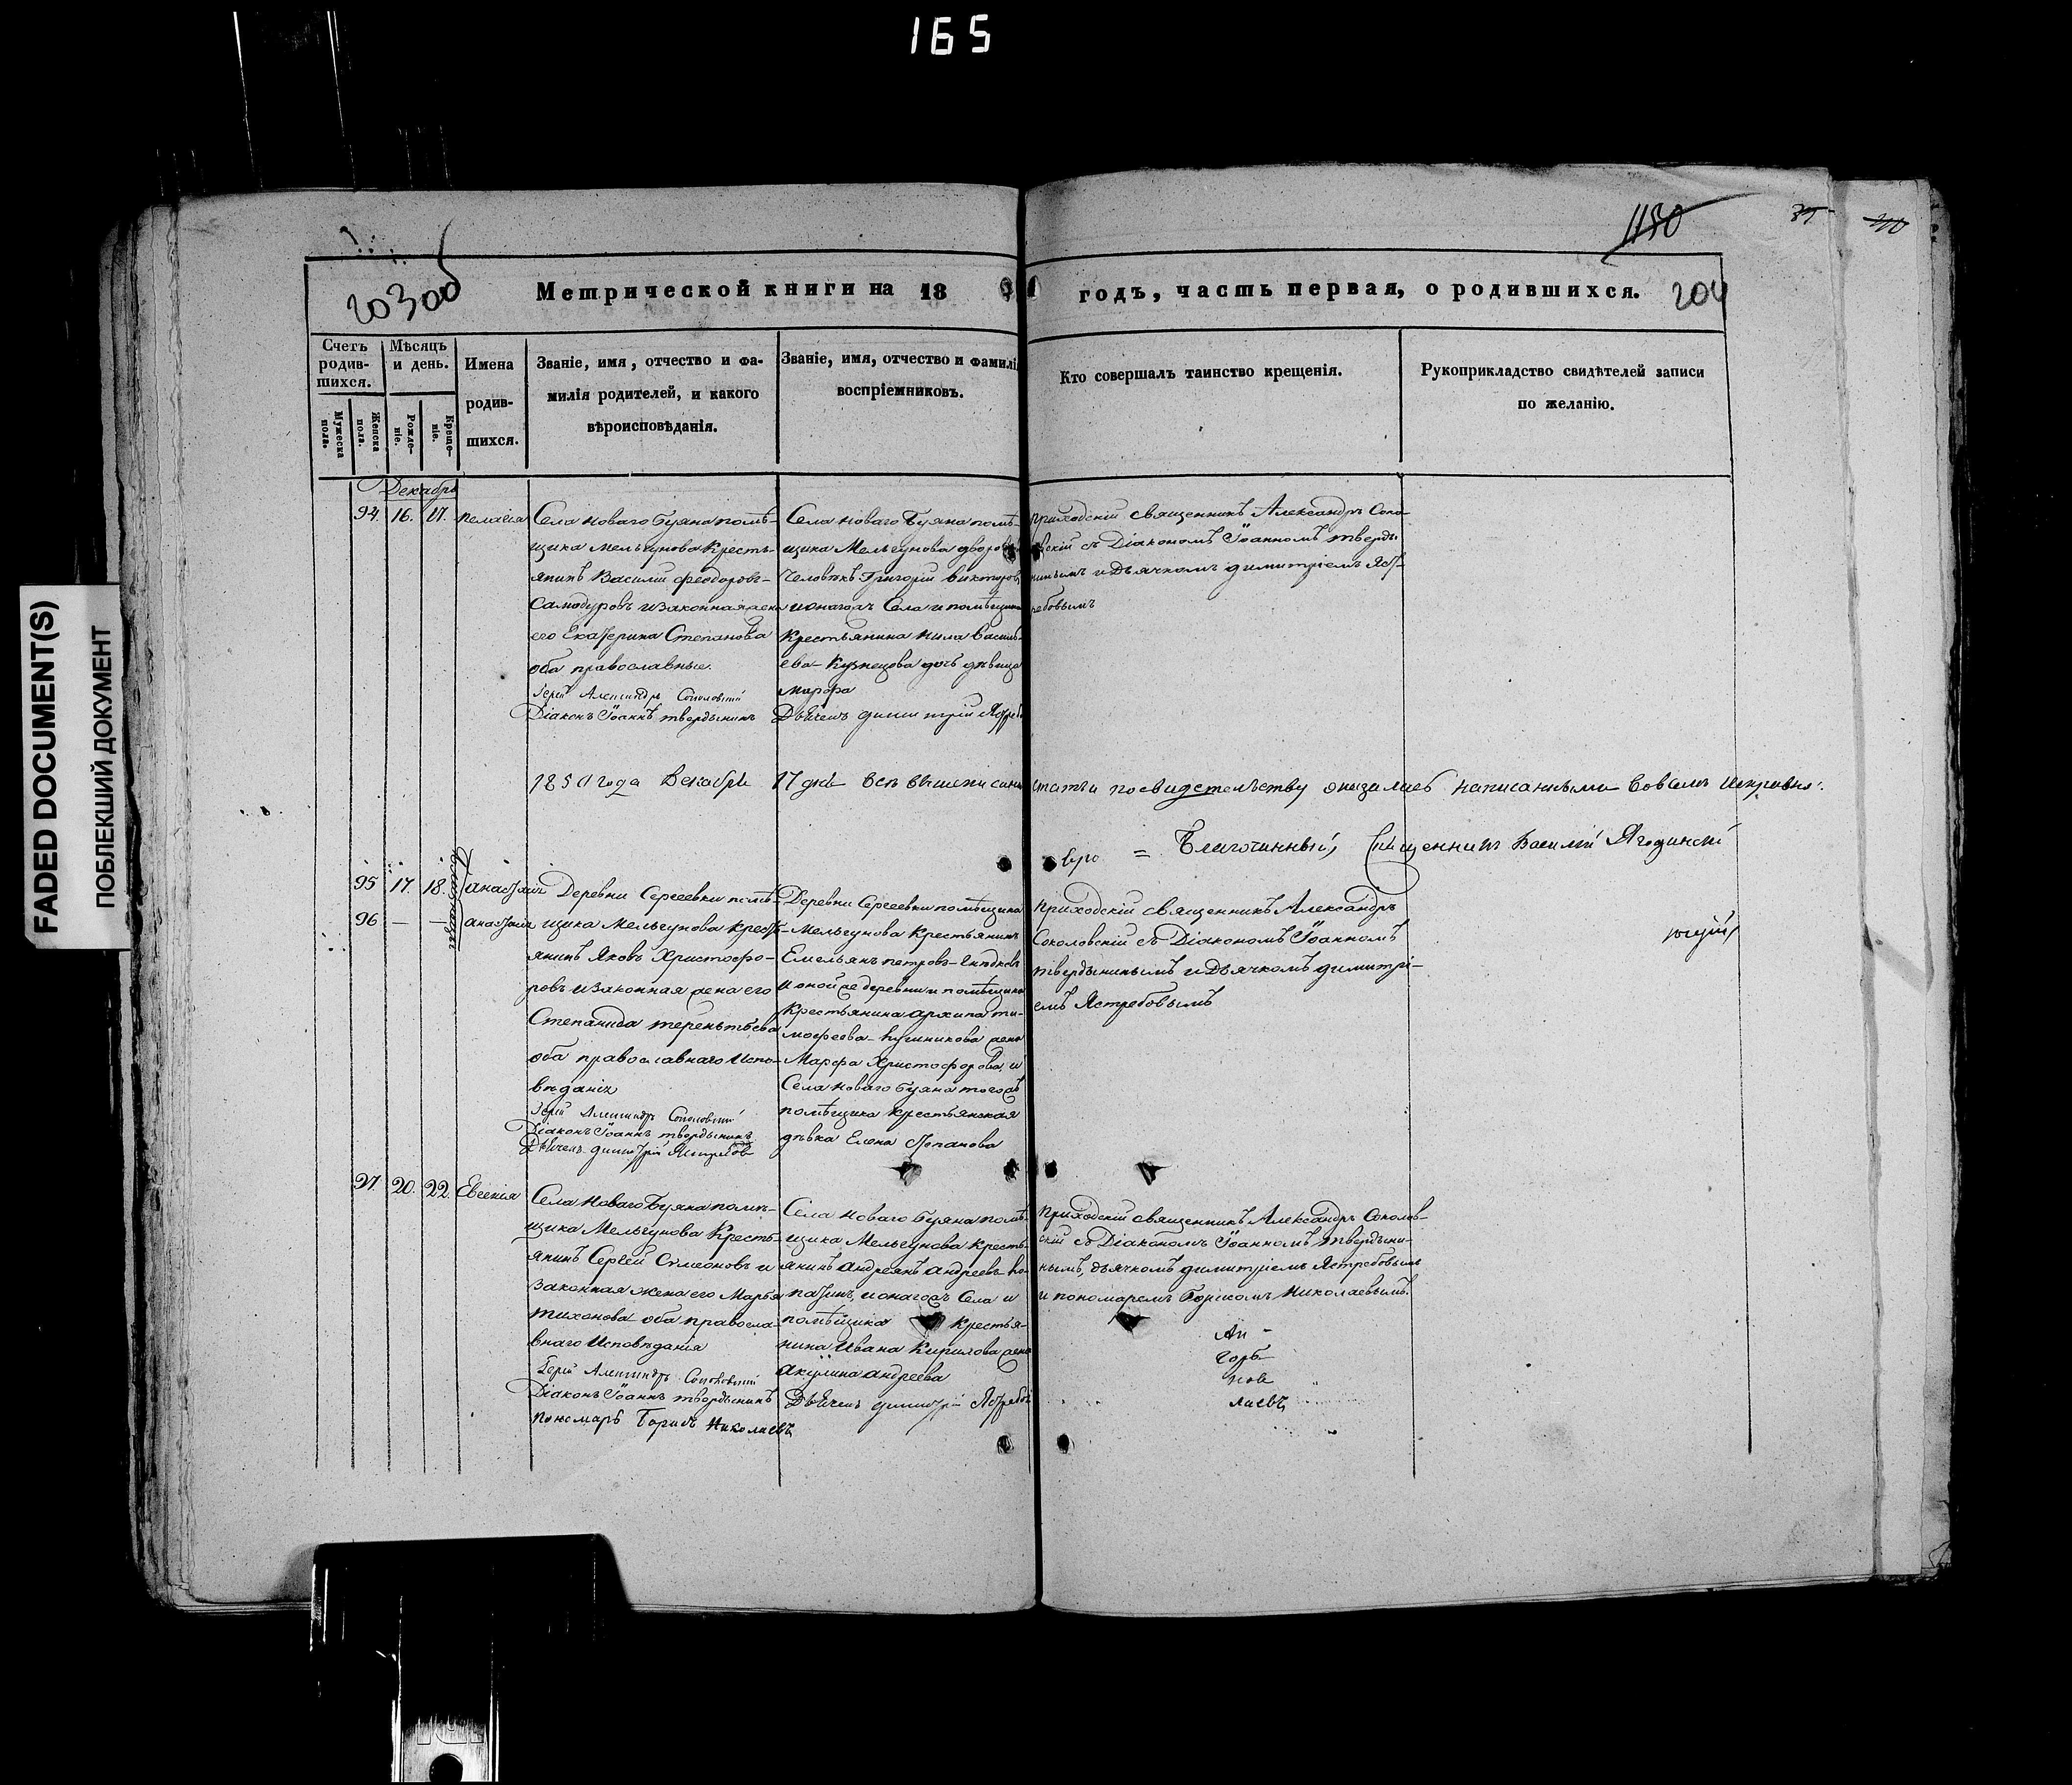 165
1150
203 об
204
Метрической книги на 18
годъ, часть первая, о родившихся.
Счетъ родив-шихся.
Мужеска пола.
Женска пола.
Мѣсяцъ и день.
Рожде-ніе.
Креще-ніе.
Имена
родив-
шихся.
Званіе, имя, отчество и фа-
милія родителей, и какого
вѣроисповѣданія.
Званіе, имя, отчество и фамилі
воспріемниковъ.
Кто совершалъ таинство крещенія.
Рукоприкладство свидѣтелей записи
по желанію.
Декабрь
94. 16. 17. Пелагія
Села Новаго Буяна помѣ-
щика Мельгунова Кресть-
янинъ Василіи Феодоровъ-
Самодуровъ и законная жена
его Екатерина Степанова
оба православные.
Іерей Александръ Соколовскій
Діаконъ Іоаннъ Твердынинъ
Села Новаго Буяна помѣ-
щика Мельгунова дворов
Человѣкъ Григоріи Викторов
и онагожъ Села и помѣщика
Крестьянина Нила Василь-
ева Кузнецова дочь дѣвица
Марфа
Дьячекъ Димитріи Ястреб
Приходскіи священникъ Александръ Соко-
вскіи съ Діакономъ Іоанномъ Тверды-
нинымъ и Дьячкомъ Димитріемъ Яст-
ребовымъ
1851 года Декабря 17 дня Всѣ вышеписанн статьи по свидетельству оказались написанными вовсемъ исправно:
= Благочинный, Священникъ Василій Ягодинскій
95 17. 18. Анастасія
96 — — Анастасія
Близнецы
Деревни Сергеевки помѣ-
щика Мельгунова Крест-
янинъ Яковъ Христофо-
ровъ и законная жена его
Степанида Терентьева
оба православнаго Испо-
вѣданія
Іерей Александръ Соколовскій
Діаконъ Іоаннъ Твердынинъ
Дьячекъ Димитрій Ястребов
Деревни Сергеевки помѣщика
Мельгунова Крестьянинъ
Емельянъ Петровъ
и оной же деревни и помѣщика
Крестьянина Архипа Ти-
мофеева жена
Марфа Христофорова, и
Села Новаго Буяна тогожъ
помѣщика крестьянская
дѣвка Елена Степанова
Приходскіи священникъ Александръ
Соколовскій съ Діакономъ Іоанномъ
Твердынинымъ и Дьячкомъ Димитрі-
емъ Ястребовымъ
97. 20. 22. Евгенія
Села Новаго Буяна помѣ-
щика Мельгунова Кресть-
янинъ Сергей Симеоновъ и
Законная жена его Марья
Тихонова оба правосла-
внаго Исповѣданія
Іерей Александръ Соколовскій
Діаконъ Іоаннъ Твердынинъ
Пономарь Борисъ Николаевъ
Села Новаго Буяна помѣ-
щика Мельгунова Кресть-
янинъ Андреянъ Андреевъ Ло-
патинъ, и онагожъ Села и
помѣщика Крестья-
нина Ивана Кирилова жена
Акулина Андреева
Дьячекъ Димитрій Ястребов
Приходскіи священникъ Александръ Соколов-
скіи съ Діакономъ Іоанномъ Твердыни-
нымъ, дьячкомъ Димитріемъ Ястребовымъ
и пономаремъ Борисомъ Николаевымъ.
лаевъ
FADED DOCUMENT(S)
ПОБЛЕКШИЙ ДОКУМЕНТ